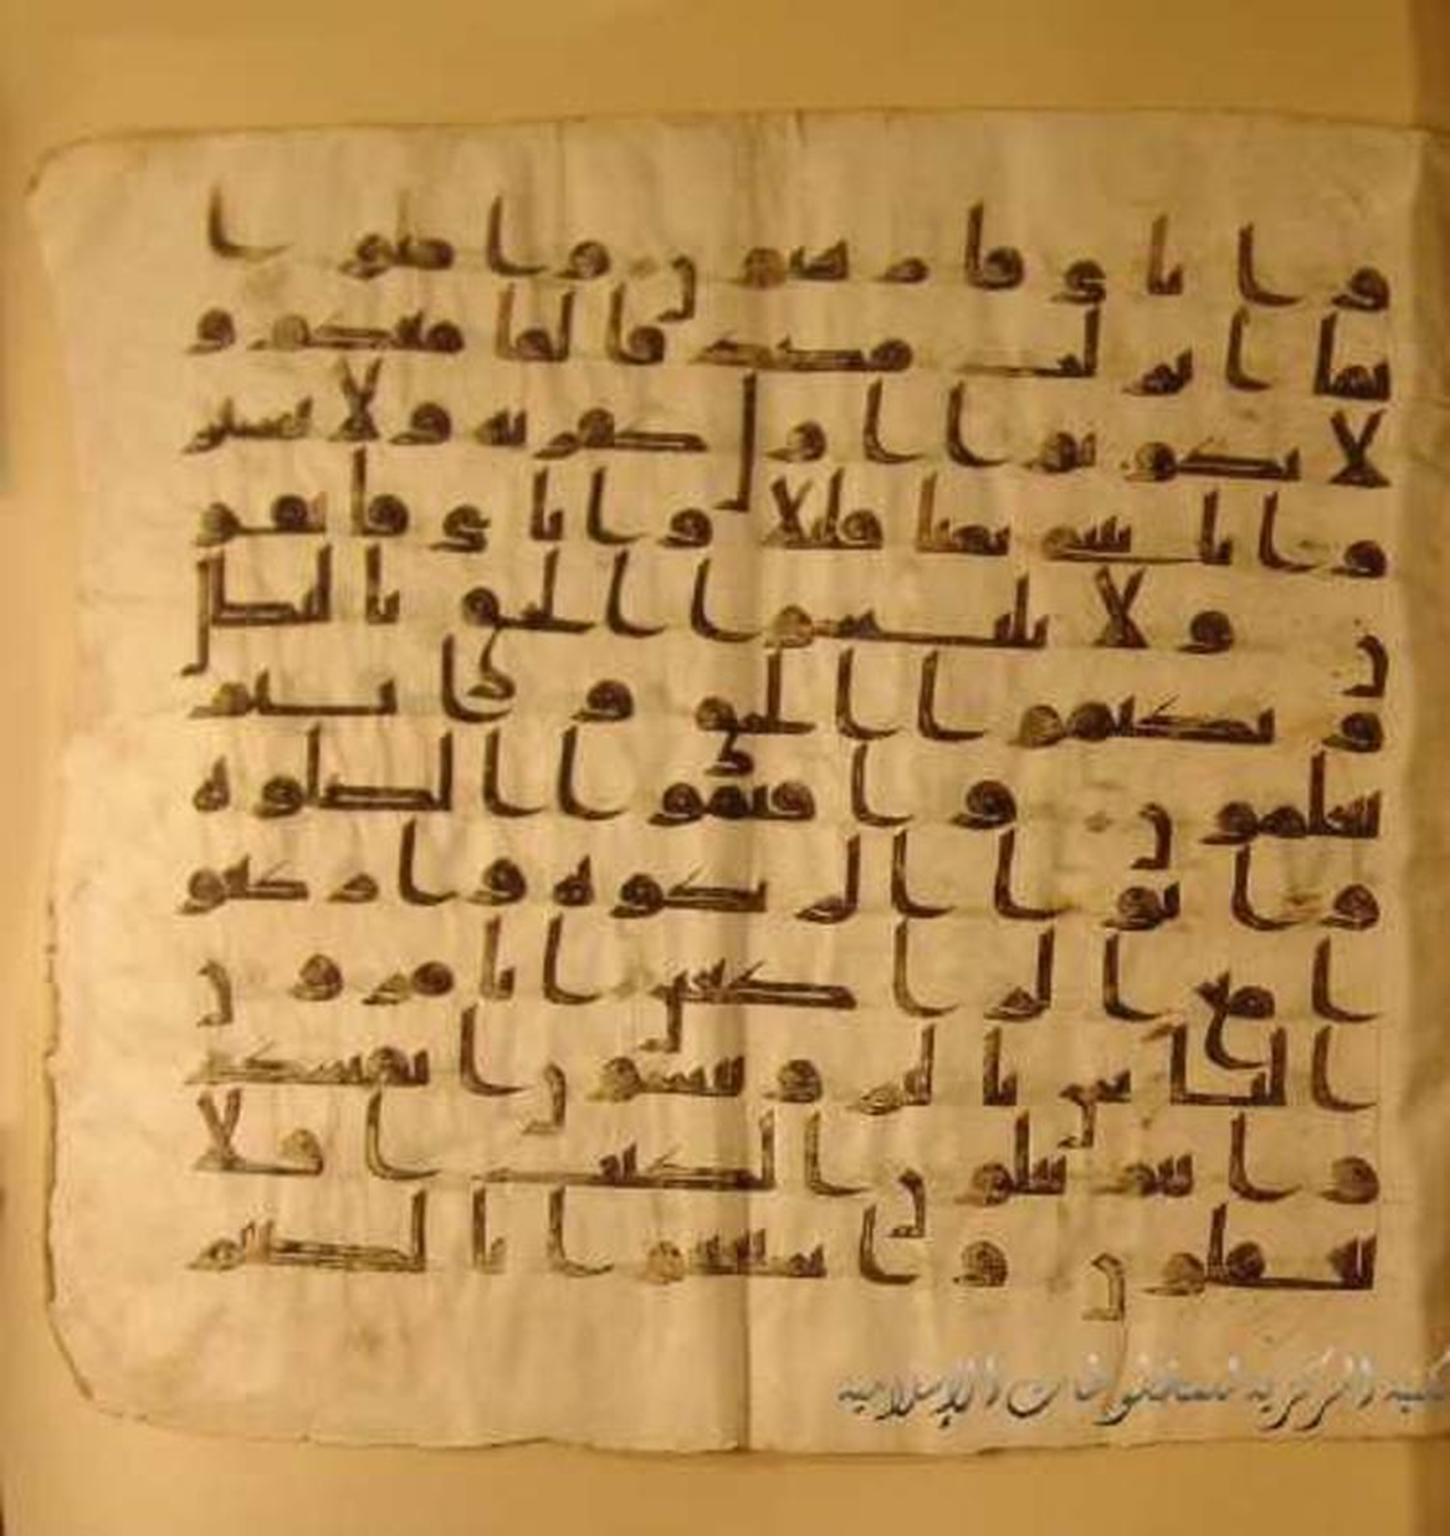 واياي فارهبون وامنوا
بما انزلت مصدقا لما معكم و
لا تكونوا اول كفر به ولا تشتر
وا بايتي ثمنا قليلا واياي فاتقو
ن ولا تلبسوا الحق بالبطل
وتكتموا الحق وانتم
تعلمون واقيموا الصلوه
واتوا الزكوه واركعو
ا مع الركعين اتامرون
الناس بالبر وتنسون انفسكم
وانتم تتلون الكتب افلا
تعقلون واستعينوا بالصبر
المركزية للمخطوطات الإسلامية